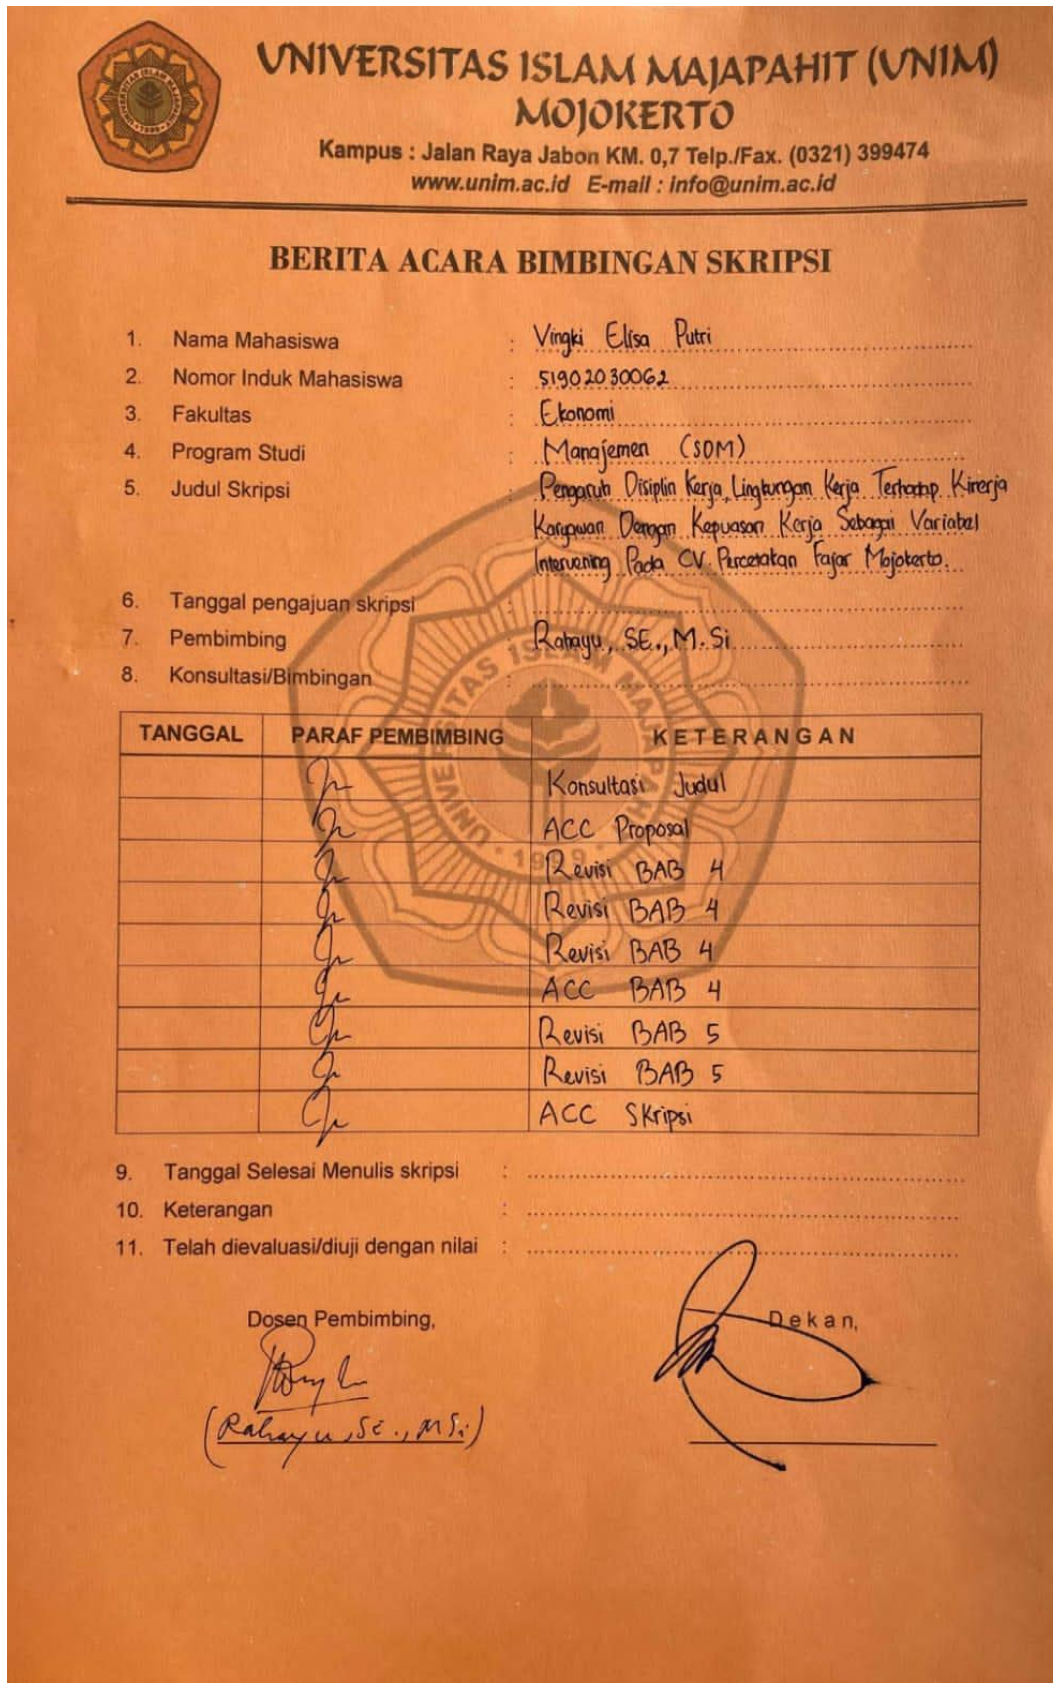 UNIVERSITAS ISLAM MAJAPAHIT (UNIM)
MOJOKERTO
Kampus : Jalan Raya Jabon KM. 0,7 Telp./Fax. (0321) 399474
www.unim.ac.id E-mail : info@unim.ac.id
BERITA ACARA BIMBINGAN SKRIPSI
1. Nama Mahasiswa : Vingki Elisa Putri
2. Nomor Induk Mahasiswa : 51902030062
3. Fakultas : Ekonomi
4. Program Studi : Manajemen (SDM)
5. Judul Skripsi : Pengaruh Disiplin Kerja, Lingkungan Kerja Terhadap Kinerja
Karyawan Dengan Kepuasan Kerja Sebagai Variabel
Intervening Pada CV. Percetakan Fajar Mojokerto.
6. Tanggal pengajuan skripsi :
7. Pembimbing : Rahayu, SE., M.Si
8. Konsultasi/Bimbingan :
TANGGAL PARAF PEMBIMBING KETERANGAN
Konsultasi Judul
ACC Proposal
Revisi BAB 4
Revisi BAB 4
Revisi BAB 4
ACC BAB 4
Revisi BAB 5
Revisi BAB 5
ACC Skripsi
9. Tanggal Selesai Menulis skripsi :
10. Keterangan :
11. Telah dievaluasi/diuji dengan nilai :
Dosen Pembimbing, Dekan,
(Rahayu, SE., MSi)